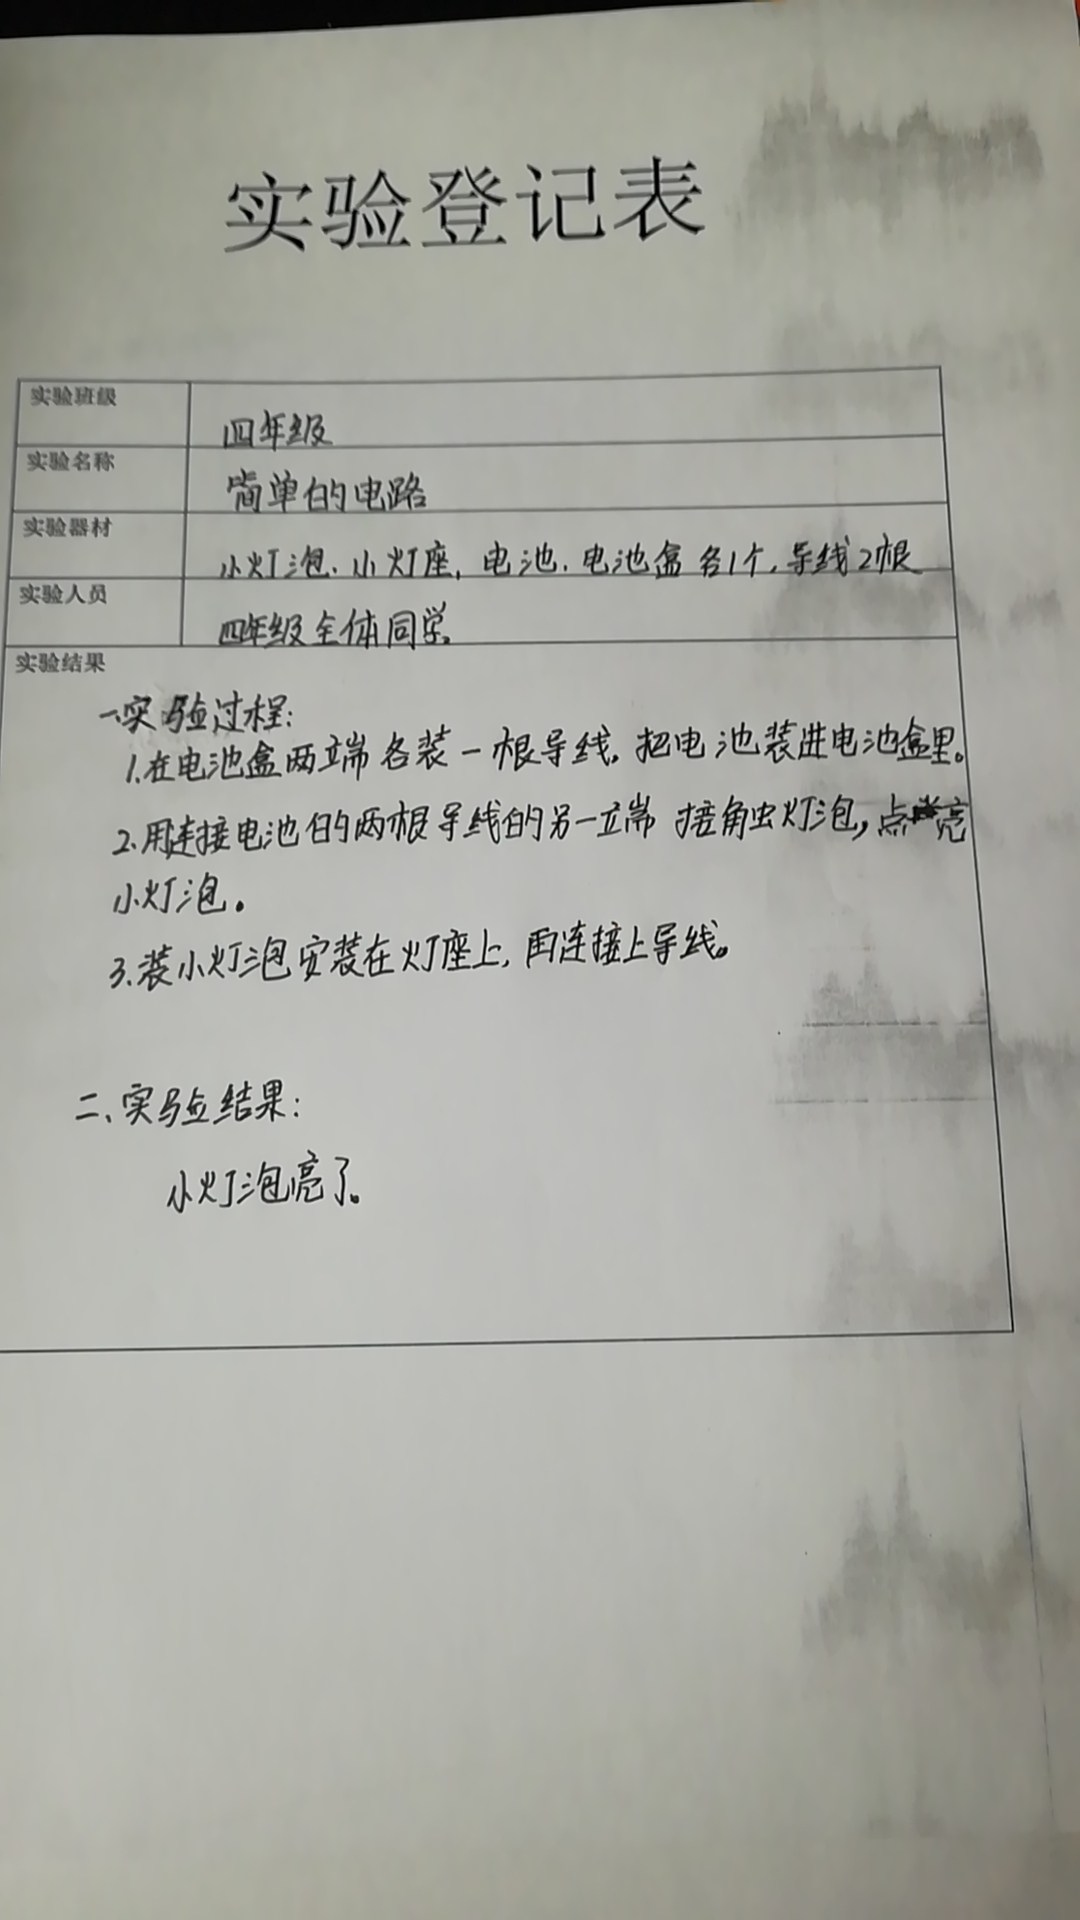 实验登记表
实验班级 四年级
实验名称 简单的电路
实验器材 小灯泡、小灯座，电池、电池盒各1个，导线2根
实验人员 四年级全体同学。
实验结果
一、实验过程：
1.在电池盒两端各装一根导线，把电池装进电池盒里。
2.用连接电池的两根导线的另一端接触灯泡，点亮
小灯泡。
3.装小灯泡安装在灯座上，再连接上导线。
二、实验结果：
小灯泡亮了。